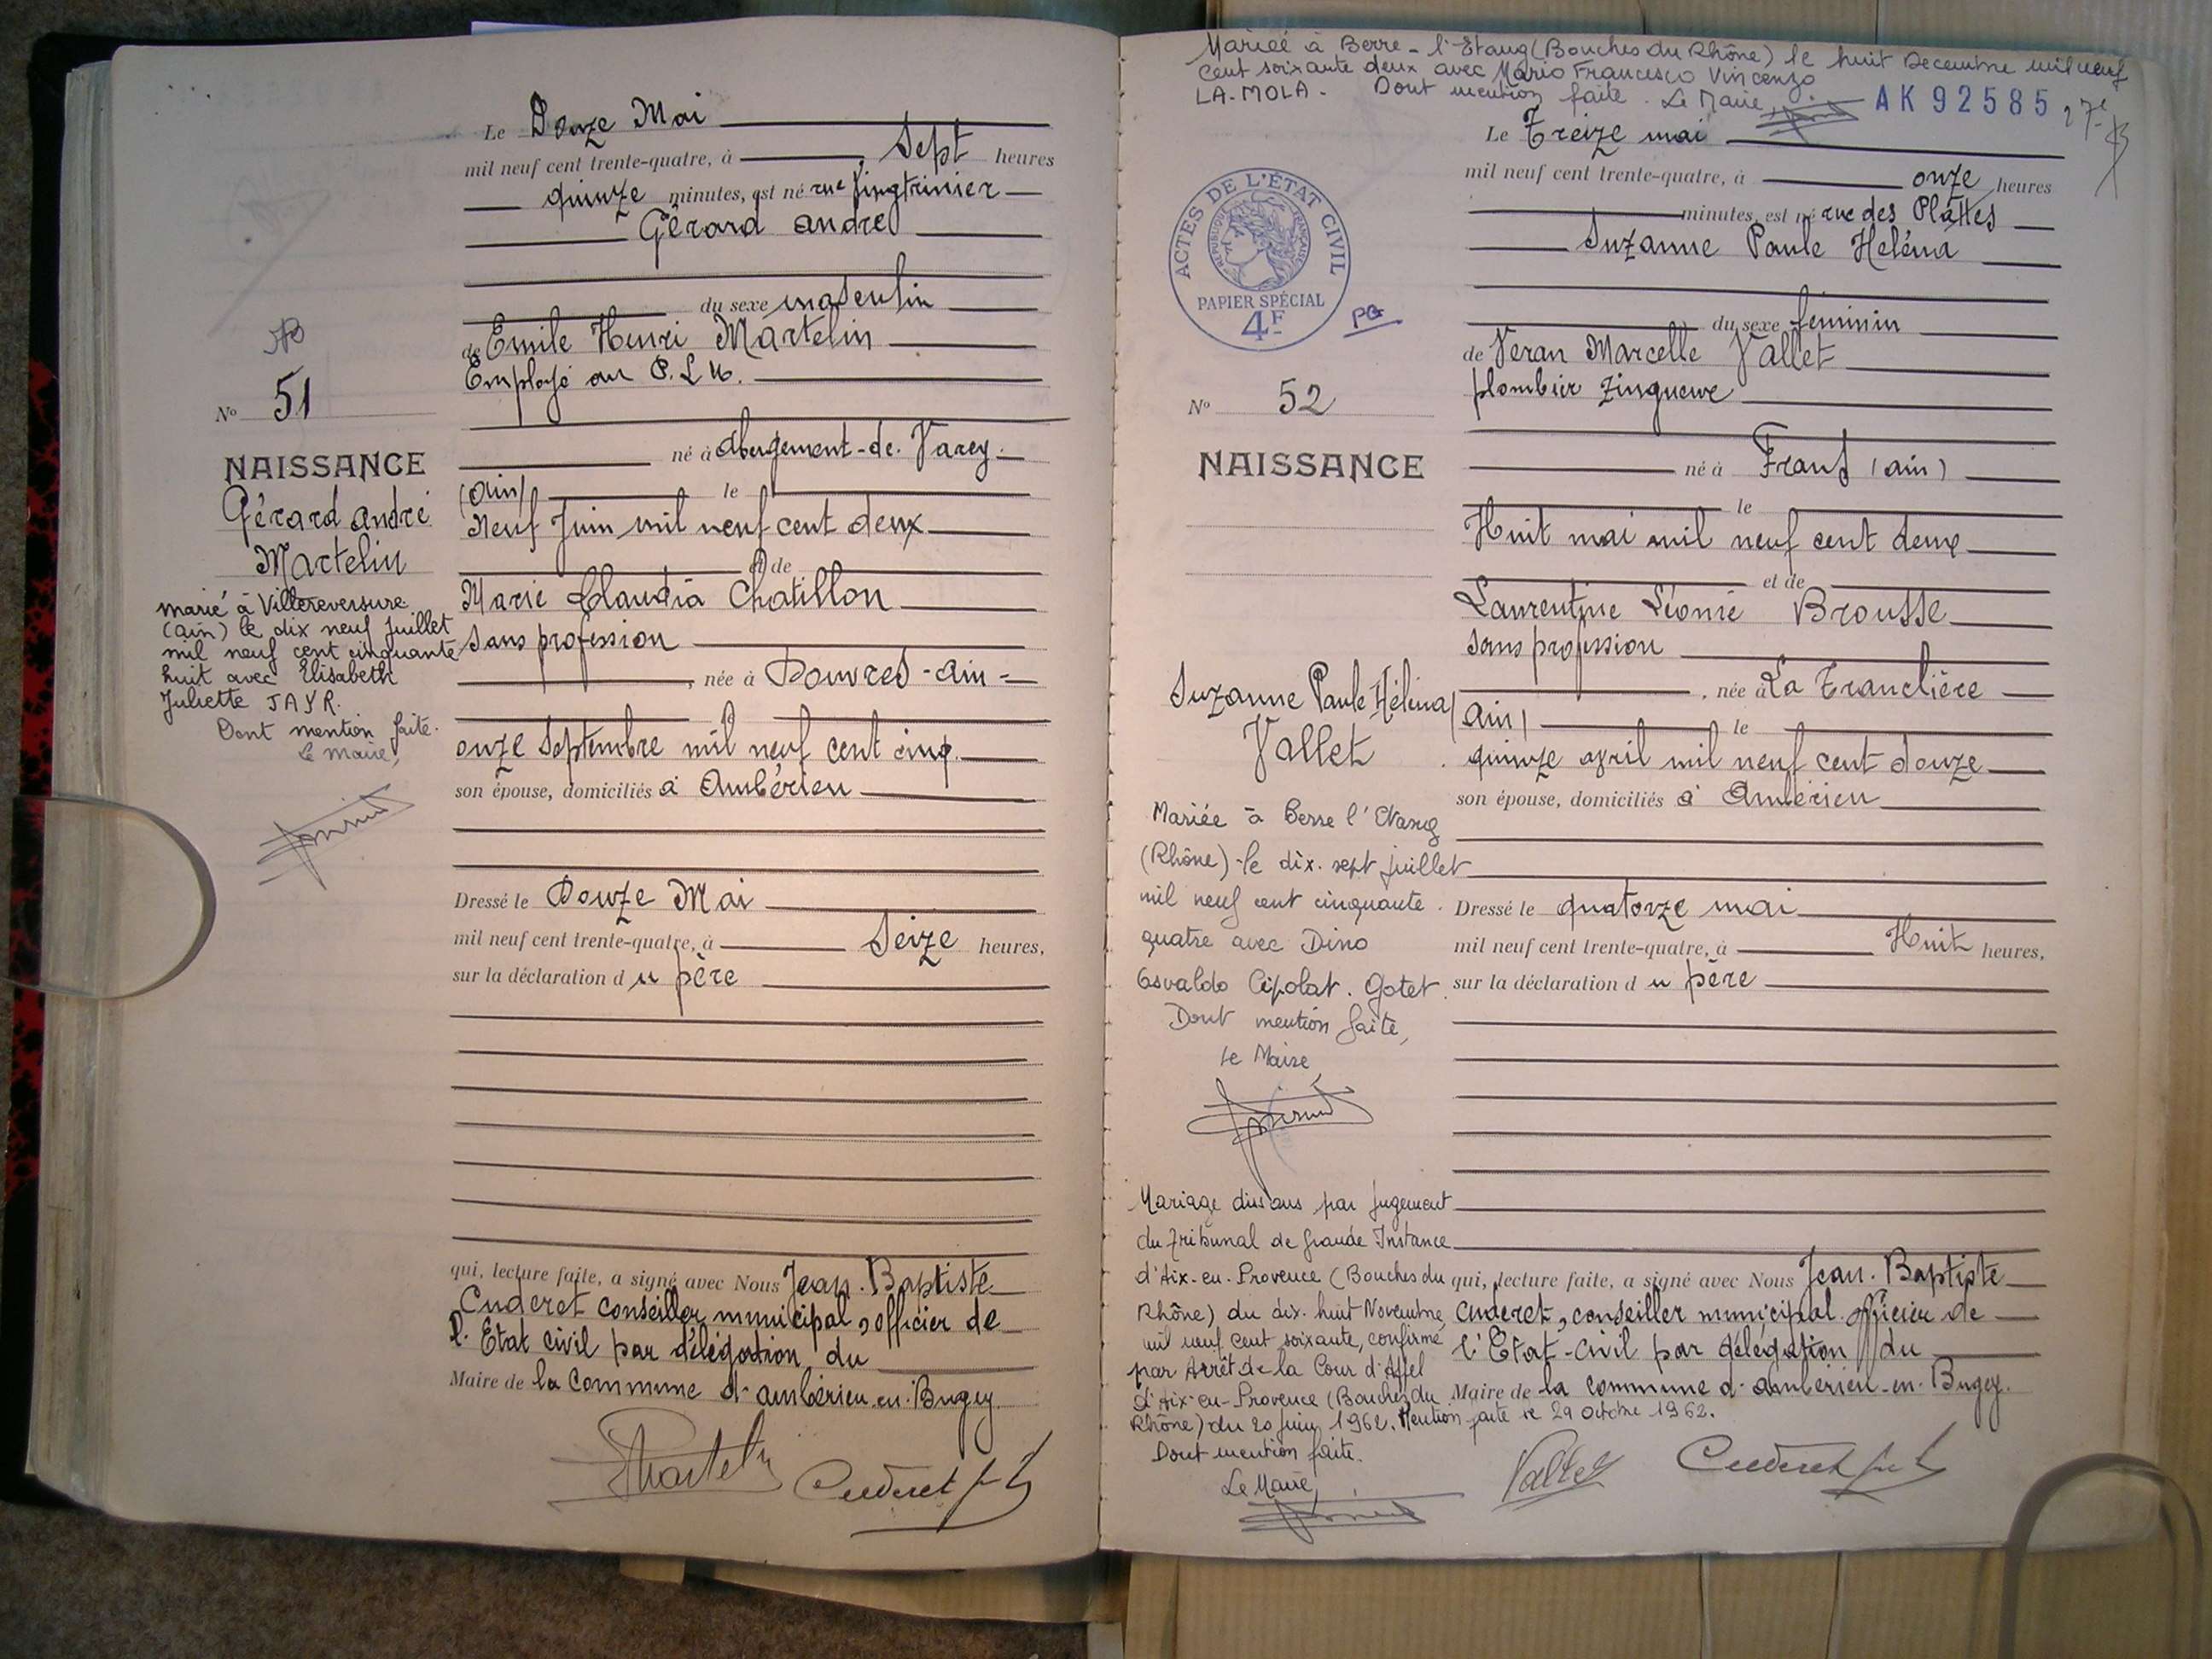 Le Douze Mai
mil neuf cent trente-quatre, à Sept heures
quinze minutes, est né rue
Gérard andré
du sexe masculin
de Emile Henri Martelin
Employé au P.L.M.
N° 51
né à abergement-de-Varey.
NAISSANCE
(ain) le
Gérard andré
Neuf Juin mil neuf cent deux
Martelin
et de
Marie Claudia Chatillon
marié à Villereversure
(ain) le dix neuf juillet
mil neuf cent cinquante
huit avec Elisabeth
Juliette JAYR.
Dont mention faite.
le maire,
Sans profession
, née à Douvres - ain -
onze Septembre mil neuf cent cinq.
son épouse, domiciliés à Ambérieu
Dressé le Douze Mai
mil neuf cent trente-quatre, à Seize heures,
sur la déclaration du père
qui, lecture faite, a signé avec Nous Jean-Baptiste
Cuderet conseiller municipal, officier de
l'Etat civil par délégation du
Maire de la Commune d'ambérieu-en-Bugey
Cuderet
Mariée à Berre-l'Étang (Bouches du Rhône) le huit Decembre mil neuf
cent soixante deux avec Mario Francesco Vincenzo
LA-MOLA. Dont mention faite. Le Maire,
AK 92585
Le Treize mai
mil neuf cent trente-quatre, à onze heures
minutes, est né rue des Plattes
Suzanne Paule Heléna
ACTES DE L'ÉTAT CIVIL
RÉPUBLIQUE FRANÇAISE
PAPIER SPÉCIAL
4F
du sexe féminin
de Veran Marcelle Vallet
plombier zingueur
N° 52
NAISSANCE
né à Frans (ain)
le
Huit mai mil neuf cent deux
et de
Laurentine Léonie Brousse
sans profession
, née à La Tranclière
(ain) le
quinze avril mil neuf cent douze
son épouse, domiciliés à Ambérieu
Suzanne Paule Héléna
Vallet
Mariée à Berre l'Etang
(Rhône) le dix-sept juillet
mil neuf cent cinquante-
quatre avec Dino
Osvaldo Cipolat-Gotet.
Dont mention faite,
Le Maire,
Dressé le quatorze mai
mil neuf cent trente-quatre, à Huit heures,
sur la déclaration du père
Mariage dissous par jugement
du Tribunal de Grande Instance
d'Aix-en-Provence (Bouches du
Rhône) du dix-huit Novembre
mil neuf cent soixante, confirmé
par Arrêt de la Cour d'Appel
d'Aix-en-Provence (Bouches du
Rhône) du 20 juin 1962. Mention faite le 29 Octobre 1962.
Dont mention faite.
Le Maire,
qui, lecture faite, a signé avec Nous Jean-Baptiste
Cuderet, conseiller municipal officier de
l'État-civil par délégation du
Maire de la commune d'ambérieu-en-Bugey.
Vallet
Cuderet